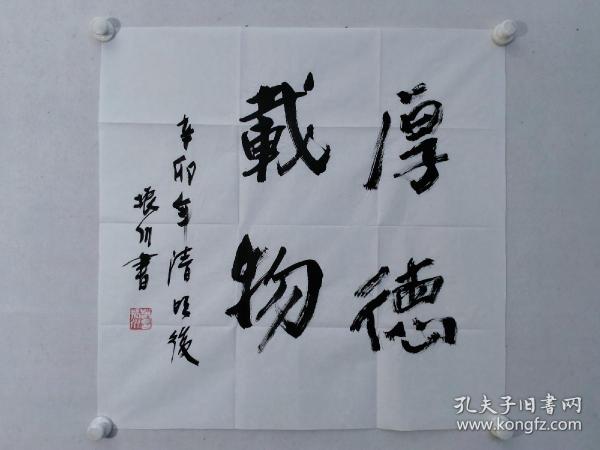 厚德
載物
辛卯年清明後
振川書
孔夫子旧書网
www.kongfz.com